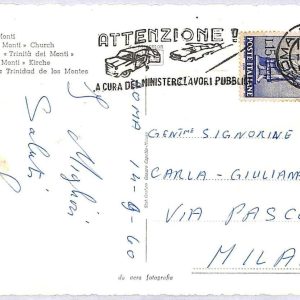 Monti
Monti » Church
» Trinità dei Monti »
Monti » Kirche
» Trinidad de los Montes
ATTENZIONE !
A CURA DEL MINISTERO LAVORI PUBBLICI
POSTE ITALIANE
ROMA 14-9-60
I Migliori
Saluti
GENT.ME SIGNORINE
CARLA - GIULIANA
VIA PASCO
MILA
da vera fotografia